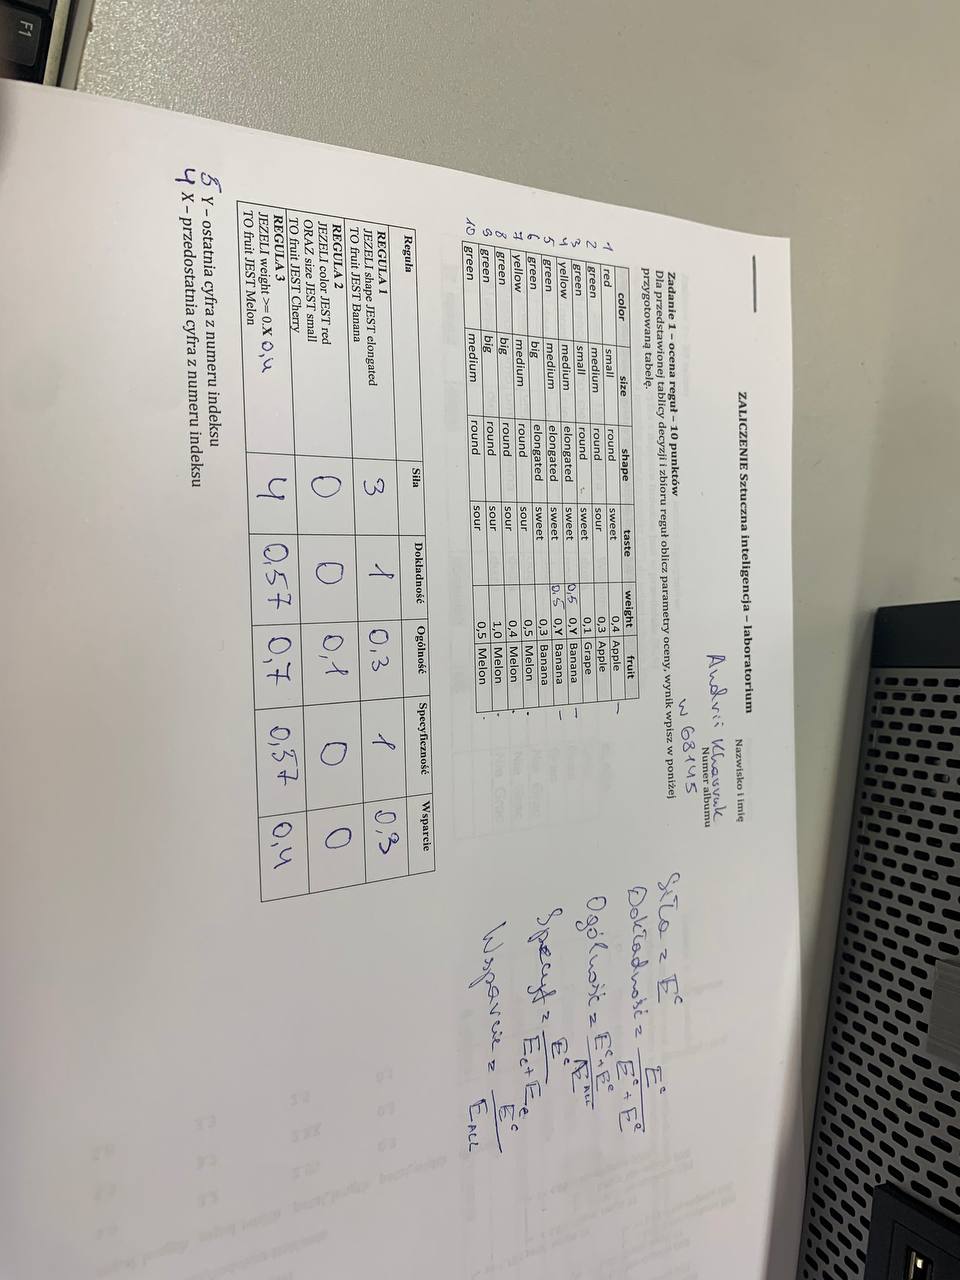 ZALICZENIE Sztuczna inteligencja – laboratorium
Nazwisko i imię
Andrii Kharruk
Numer albumu
w 68145
Zadanie 1 – ocena reguł – 10 punktów
Dla przedstawionej tablicy decyzji i zbioru reguł oblicz parametry oceny, wynik wpisz w poniżej
przygotowaną tabelę.
color size shape taste weight fruit
1 red small round sweet 0,4 Apple –
2 green medium round sour 0,3 Apple
3 green small round sweet 0,1 Grape
4 yellow medium elongated sweet 0,5 0,Y Banana –
5 green medium elongated sweet 0.5 0,Y Banana –
6 green big elongated sweet 0,3 Banana
7 yellow medium round sour 0,5 Melon -
8 green big round sour 0,4 Melon .
9 green big round sour 1,0 Melon .
10 green medium round sour 0,5 Melon .
Siła = E^c
Dokładność = E^c / E^c + E^e
Ogólność = E^c + E^e / E^ALL
Specyf = E^c / E_c + E_e
Wsparcie = E^c / E_ALL
Reguła Siła Dokładność Ogólność Specyficzność Wsparcie
REGULA 1
JEZELI shape JEST elongated
TO fruit JEST Banana
3 1 0,3 1 0,3
REGULA 2
JEZELI color JEST red
ORAZ size JEST small
TO fruit JEST Cherry
0 0 0,1 0 0
REGULA 3
JEZELI weight >= 0.X 0,4
TO fruit JEST Melon
4 0,57 0,7 0,57 0,4
5 Y – ostatnia cyfra z numeru indeksu
4 X – przedostatnia cyfra z numeru indeksu
F1